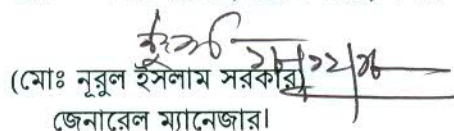 (মোঃ নূরুল ইসলাম সরকার)
জেনারেল ম্যানেজার।